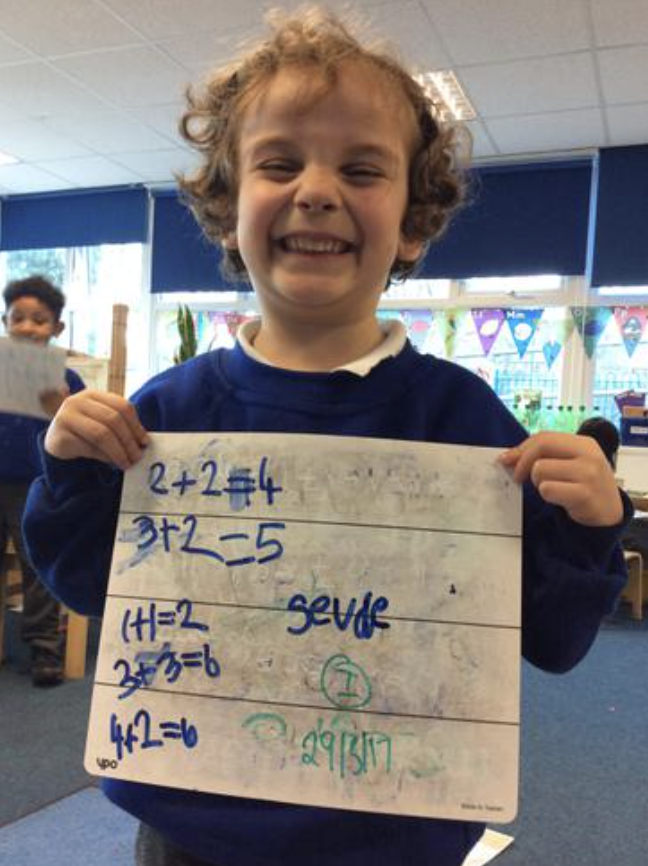 2+2=4
3+2=5
1+1=2
3+3=6
4+2=6
I
29/3/17
ypo
Mm